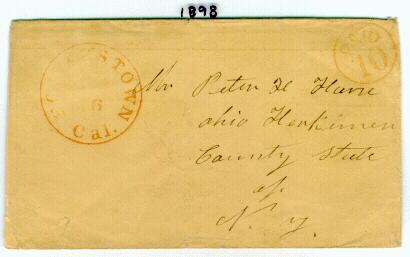 1898
PAID
10
STOWN
6
Cal.
Mr Peter H
Ohio Herkimer
County State
of
N. Y.